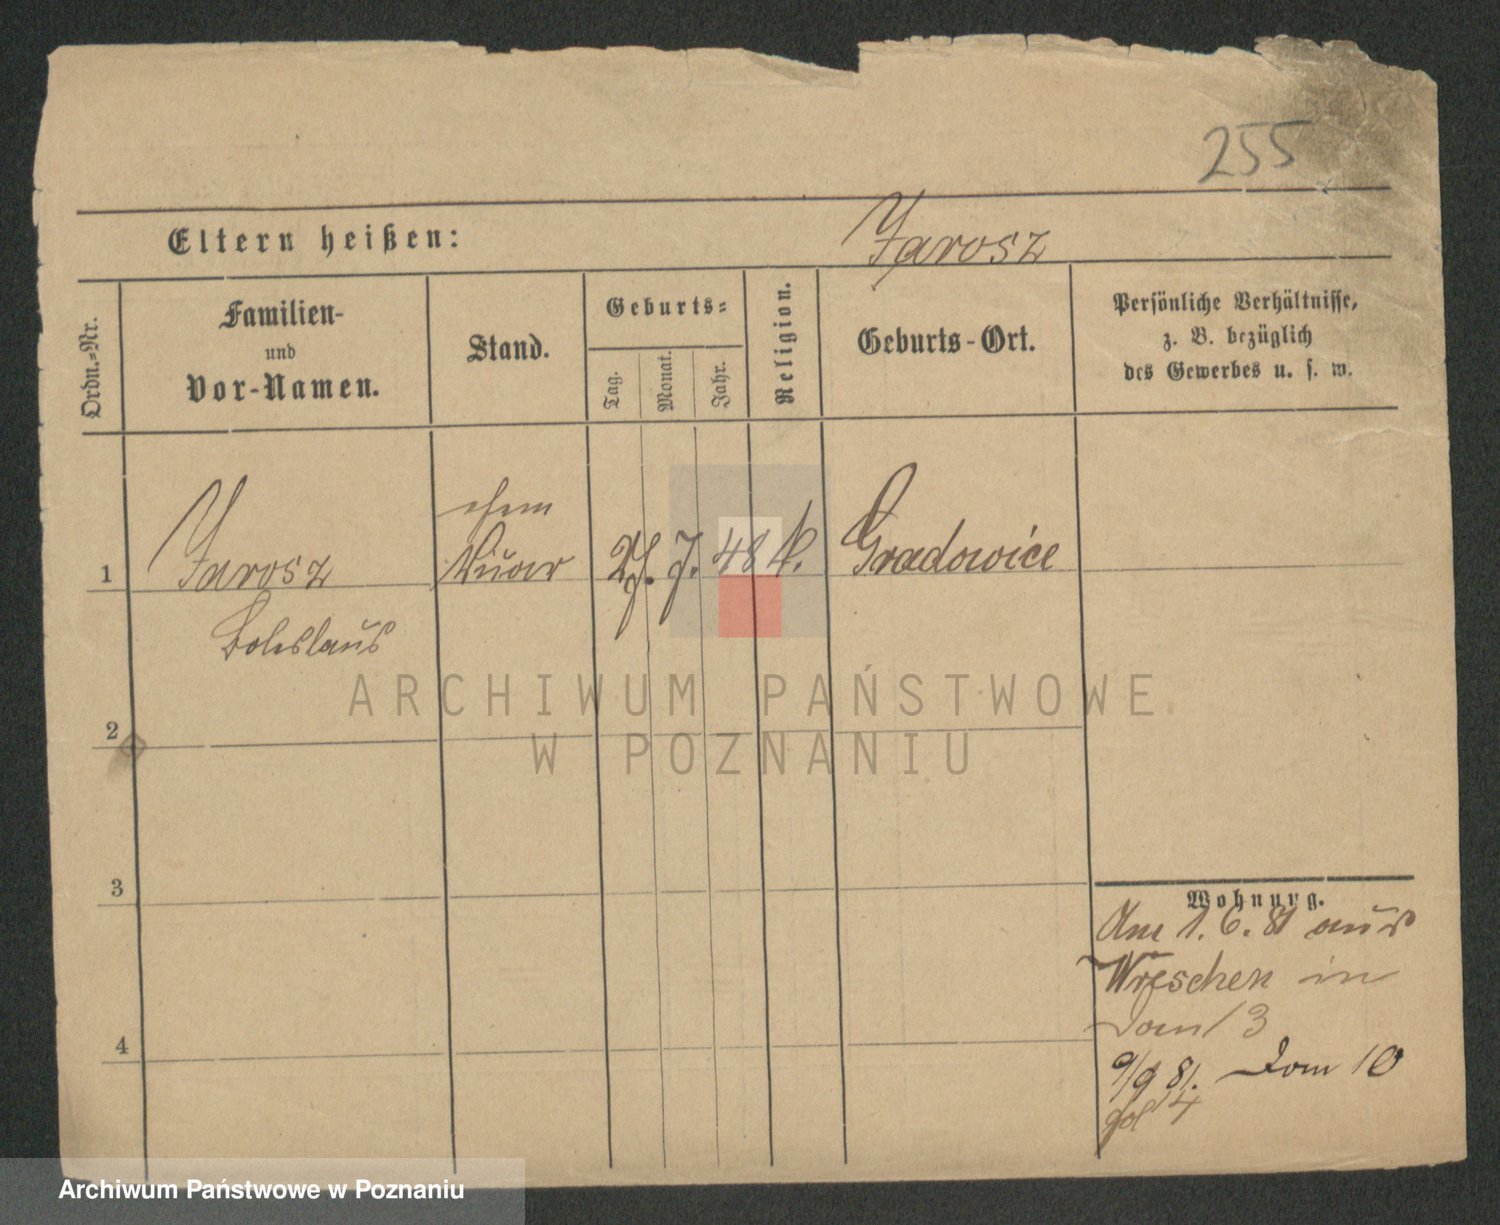 255
Eltern heißen: Jarosz
Ordn.-Nr.
Familien-
und
Vor-Namen.
Stand.
Geburts-
Tag.
Monat.
Jahr.
Religion.
Geburts-Ort.
Persönliche Verhältnisse,
z. B. bezüglich
des Gewerbes u. s. w.
1 Jarosz ehem Vicar 27. 7. 48 k. Gradowice
Boleslaus
2
3
4
Wohnung.
Am 1. 6. 81 aus
Wreschen in
Dom 13
9/9 81. Dom 10
ARCHIWUM PAŃSTWOWE
W POZNANIU
Archiwum Państwowe w Poznaniu